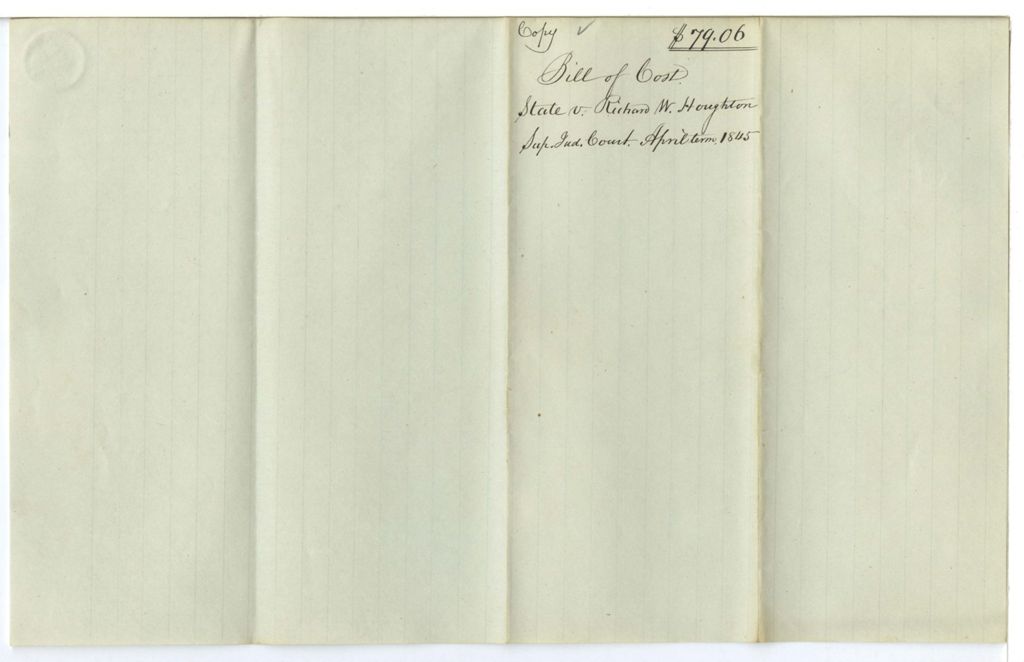 Copy ✓ $79.06
Bill of Cost
State v. Richard W. Houghton
Sup. Jud. Court. April term, 1845